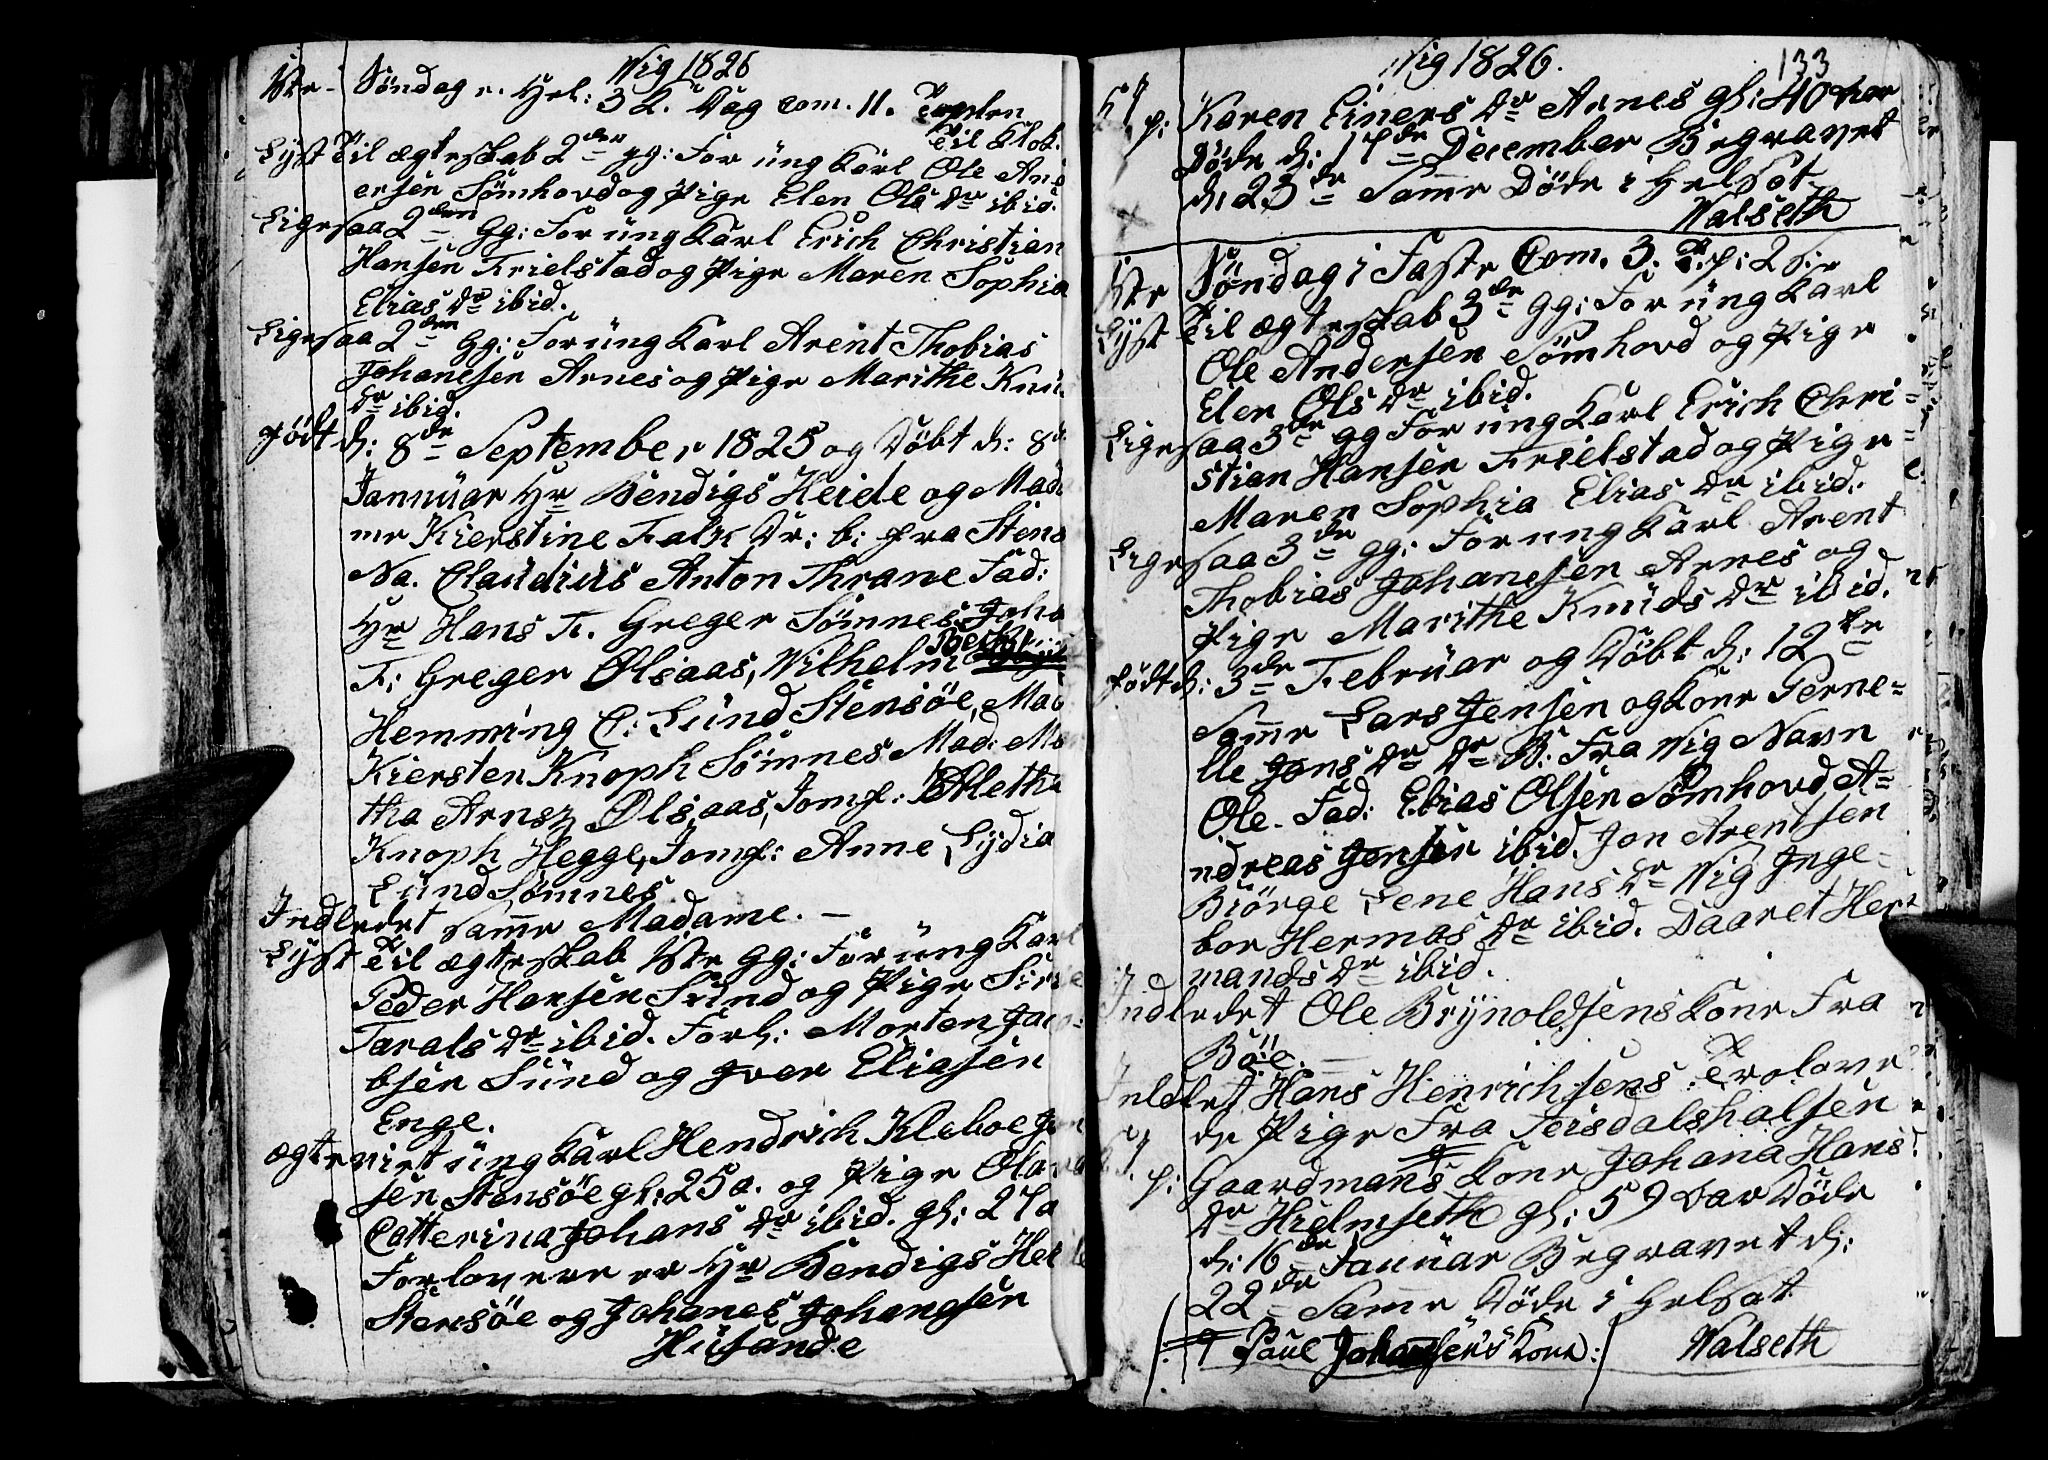 Wig 1826
1ste Söndag e. Hel: 3 K. Dag Com. 11. Toslen
Til Klok.
Lyst Til ægteskab 2den gg: For üng Karl Ole And
ersen Sömhovd og Pige Elen Ols Dr ibid.
Ligesaa 2den Gg: For üng Karl Erich Christian
Hansen Trielstad og Pige Maren Sophia
Elias Dr ibid.
Ligesaa 2den Gg: For üng Karl Arent Thobias
Johanesen Arnes og Pige Marithe Knü
Dr ibid.
Födt d: 8de September 1825 og Döbt d: 8d
Januüar Hr Bendigs Heide og Mada
me Kierstine Falk Dr: b: fra Stens
Na. Claudius Anton Thrane Fad:
Hr Hans F. Greger Sömnes, Joha
F: Greger Olsaas, Wilhelm
Hemming C: Lünd Stensöe, Mad
Kiersten Knoph Sömnes Mad: Ma
tha Arnsz Olsaas, Jomf: Aletha
Knoph Hegge, Jomf: Anne Lydia
Lünd Sömnes
Indledet samme Madame. —
Lyst Til ægteskab 1ste Gg: For üng Karl
Peder Hansen Sünd og Pige Sire
Tarals Dr ibid. Forl: Morten Jaco-
bsen Sünd og Iver Eliasen
Enge.
ægteviet üng Karl Hendrich Kleboe Jen
sen Stensöe gl: 25 a. og Pige Olava
Catterina Johans Dr ibid. gl: 27 a
Forlovere er Hr Bendigs Heide
Stensöe og Johanes Johansen
Hüsande
Wig 1826. 133
p: Karen Einers Dr Arnes gl: 40 aar
Döde d: 17de December Begravet
d: 23de Samme Döde i Helsot
Walseth
1ste Söndag i Faste Com. 3. T. p: 2 S:e
Lyst Til ægteskab 3de Gg: For üng Karl
Ole Andersen Sömhovd og Pige
Elen Ols Dr ibid.
Ligesaa 3de gg For ung Karl Erich Chri-
stian Hansen Trielstad og Pige
Maren Sophia Elias Dr ibid.
Ligesaa 3de gg: For ung Karl Arent
Thobias Johanesen Arnes og
Pige Marithe Knüds Dr ibid.
Födt d: 3de Februar og Döbt d: 12te
Samme Lars Jensen og Kone Perne-
lle Jons Dr Dr B: Fra Wig Navn
Ole. Fad: Elias Olsen Sömhovd A-
ndreas Jensen ibid. Jon Arentsen
Biörge Lene Hans Dr Wig Inge-
bor Hermos Dr ibid. Daaret Her
mands Dr ibid.
Indledet Ole Brynoldsens Kone Fra
Böe. —
Inledet Hans Henrichsens Trolove
de Pige Fra Feisdalshalsen
p: Gaardmans Kone Johana Hans
Dr Hielmseth gl: 59 aar Döde
d: 16de Januar Begravet d:
22de Samme Döde i Helsot
/: Paul Johansens Kone :/ Walseth